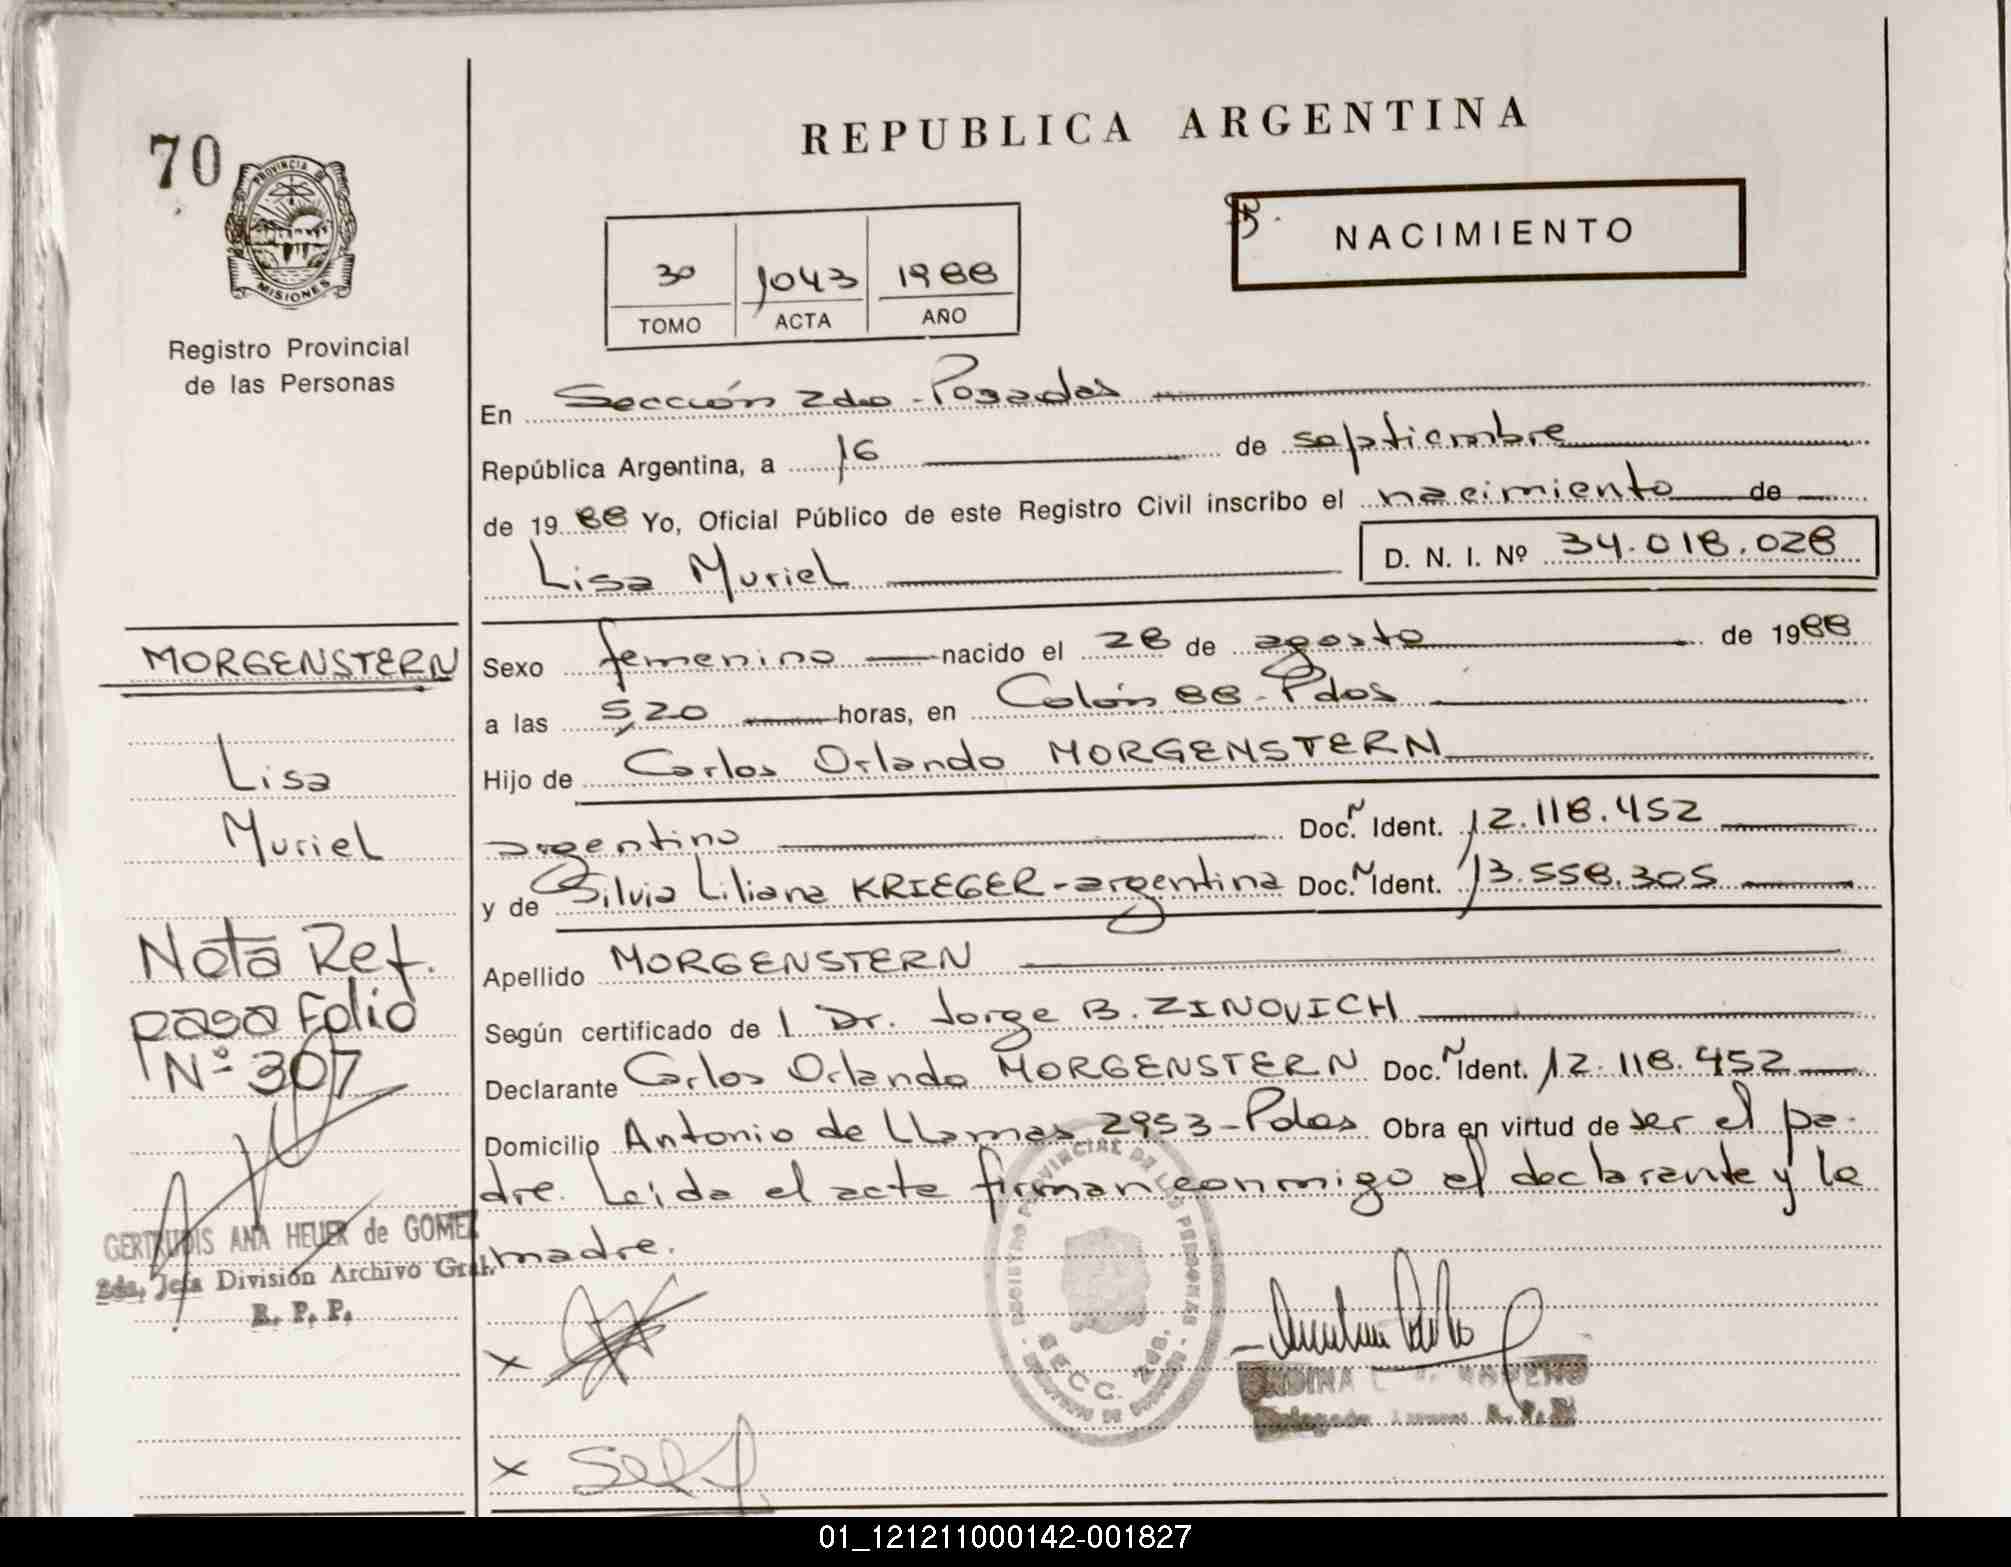 70
PROVINCIA DE
MISIONES
Registro Provincial
de las Personas
REPUBLICA ARGENTINA
NACIMIENTO
30 1043 1988
TOMO ACTA AÑO
En Sección 2da - Posadas
República Argentina, a 16 de septiembre
de 1988 Yo, Oficial Público de este Registro Civil inscribo el nacimiento de
Lisa Muriel D. N. I. Nº 34.018.028
Sexo femenino nacido el 28 de agosto de 1988
a las 5,20 horas, en Colón 88 - Pdas
Hijo de Carlos Orlando MORGENSTERN
argentino Doc. Ident. 12.118.452
y de Silvia Liliana KRIEGER - argentina Doc. Ident. 13.558.305
Apellido MORGENSTERN
Según certificado de l Dr. Jorge B. ZINOVICH
Declarante Carlos Orlando MORGENSTERN Doc. Ident. 12.118.452
Domicilio Antonio de Llamas 2953 - Pdas Obra en virtud de ser el pa-
dre. Leida el acta firman conmigo el declarante y la
madre.
MORGENSTERN
Lisa
Muriel
Nota Ref.
pasa Folio
Nº 307
GERTRUDIS ANA HEUER de GOMEZ
2da. Jefa División Archivo Gral.
R. P. P.
REGISTRO PROVINCIAL DE LAS PERSONAS
SECC. 2da.
x
x
01_121211000142-001827